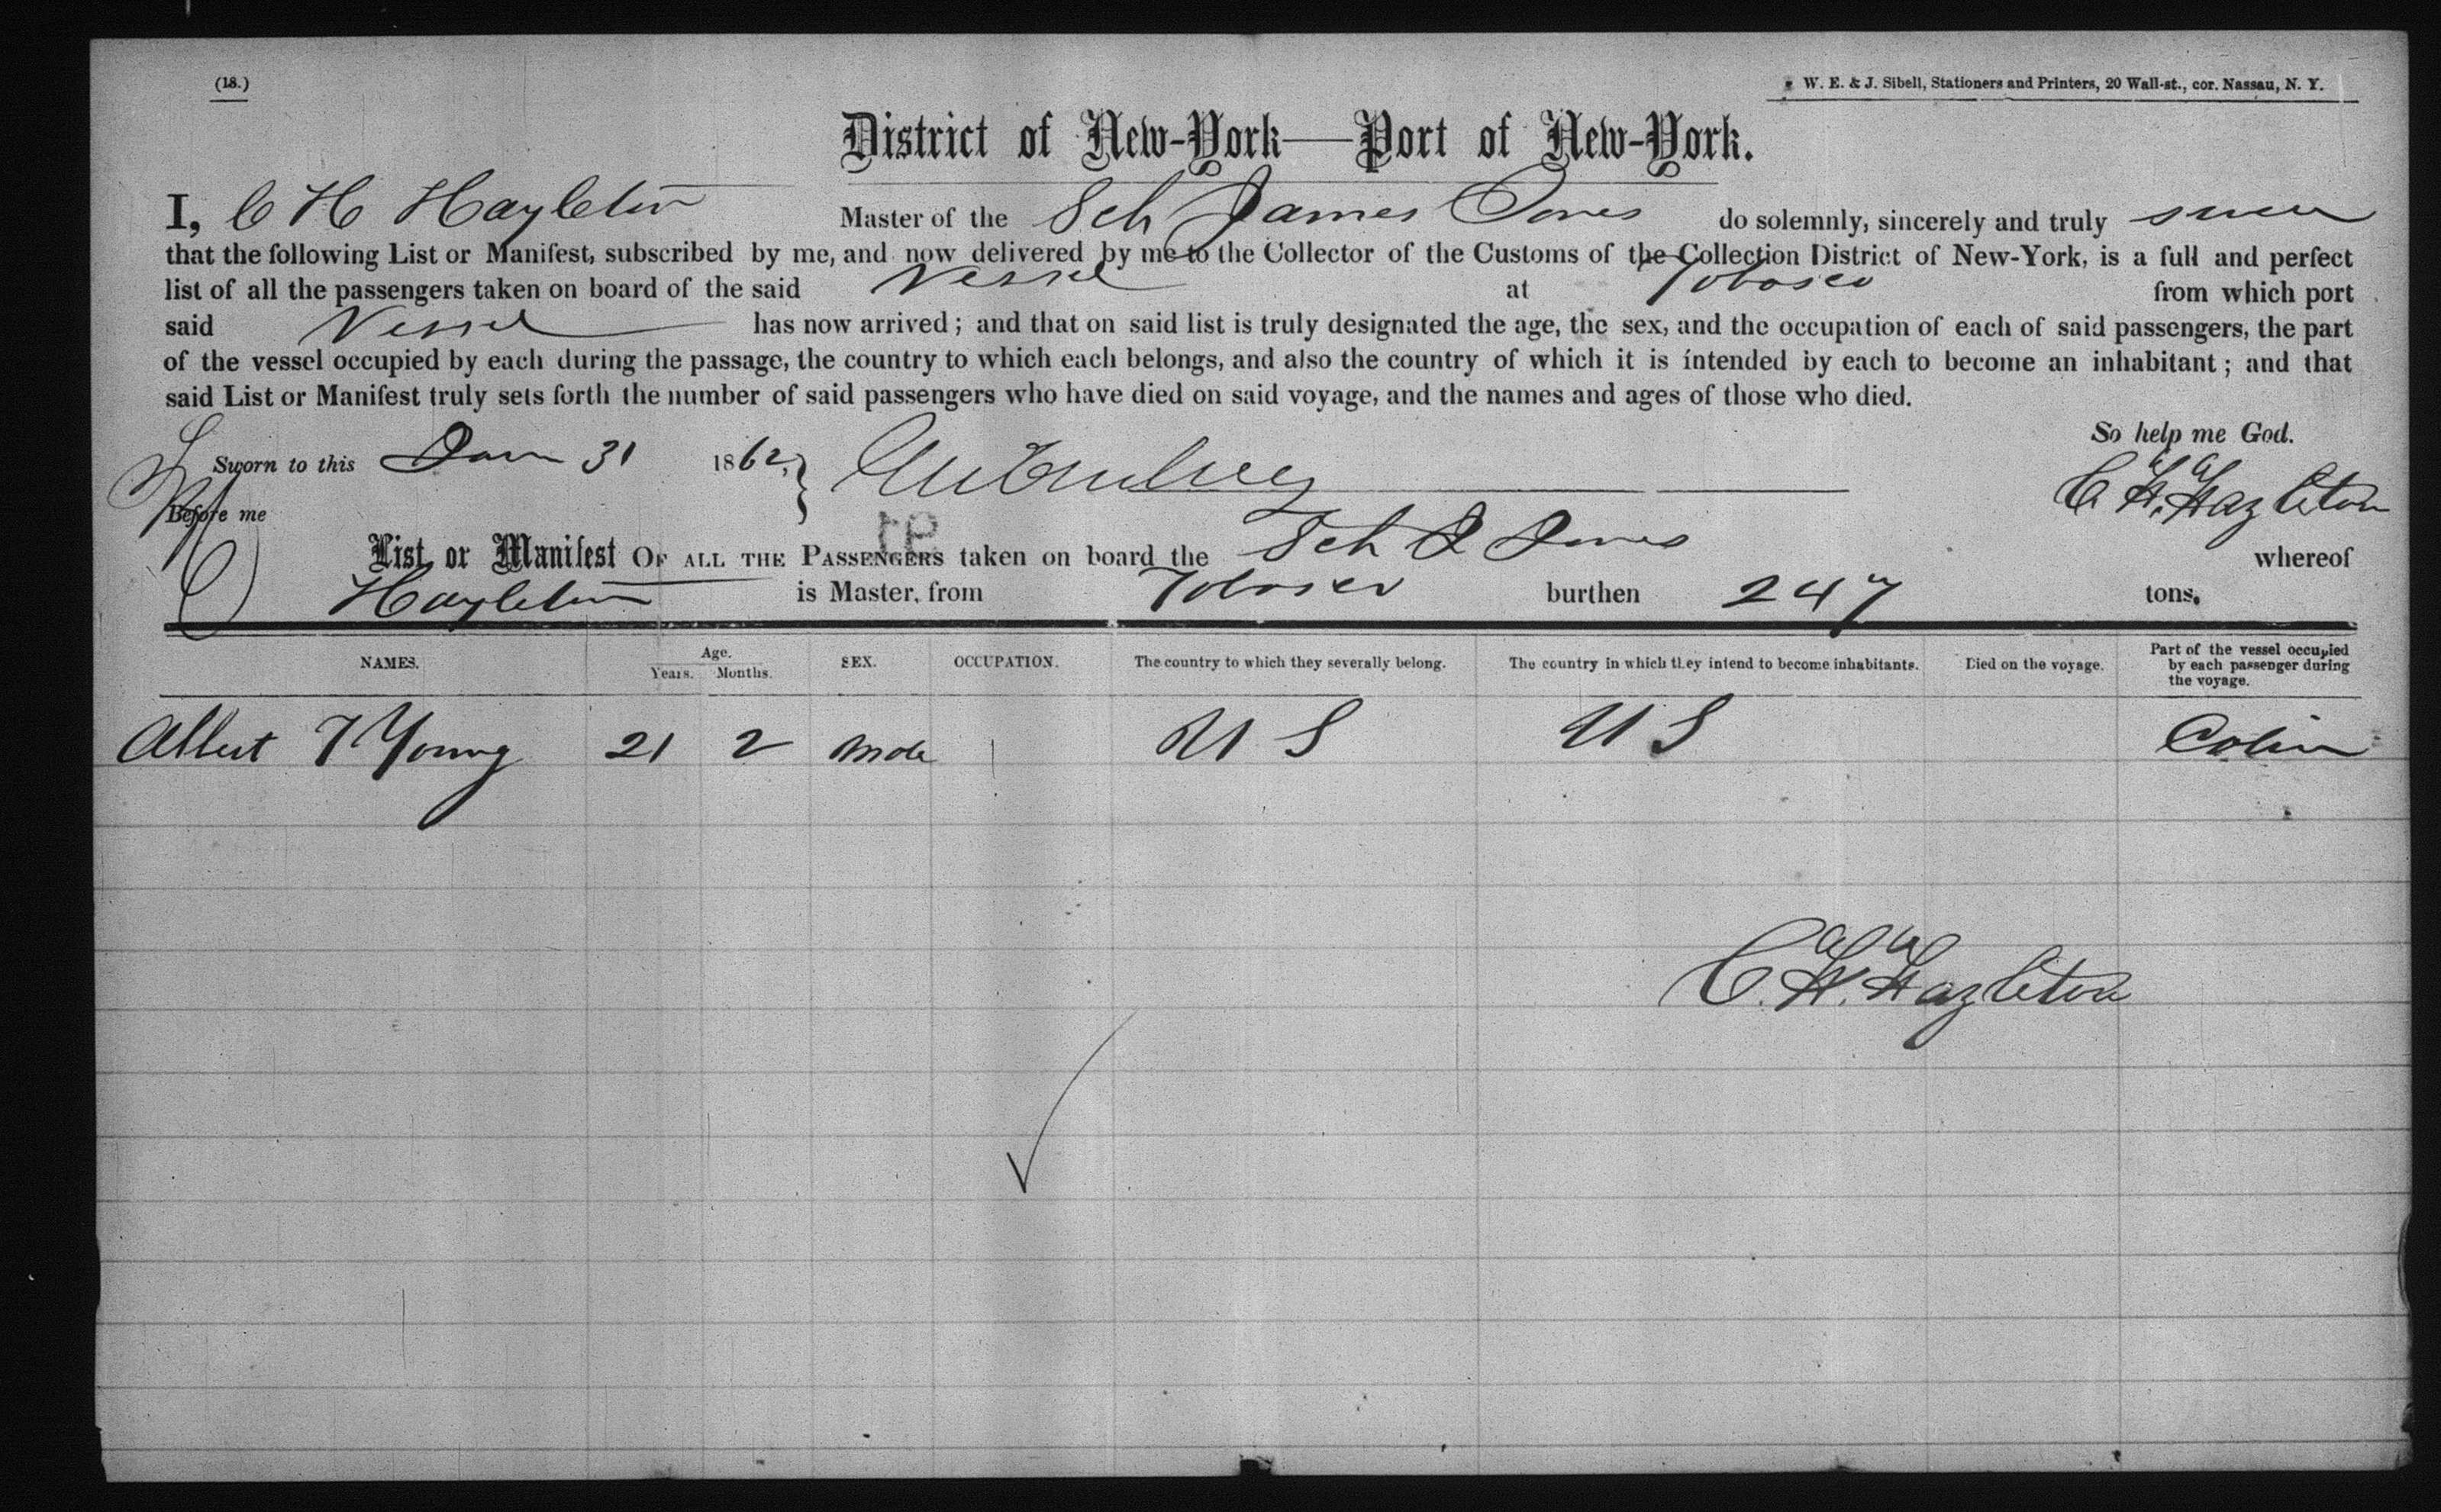 (18.)
W. E. & J. Sibell, Stationers and Printers, 20 Wall-st., cor. Nassau, N. Y.
District of New-York—Port of New-York.
I, C H Hazleton Master of the Sch James Jones do solemnly, sincerely and truly swear
that the following List or Manifest, subscribed by me, and now delivered by me to the Collector of the Customs of the Collection District of New-York, is a full and perfect
list of all the passengers taken on board of the said Vessel at Tobasco from which port
said Vessel has now arrived; and that on said list is truly designated the age, the sex, and the occupation of each of said passengers, the part
of the vessel occupied by each during the passage, the country to which each belongs, and also the country of which it is intended by each to become an inhabitant; and that
said List or Manifest truly sets forth the number of said passengers who have died on said voyage, and the names and ages of those who died.
So help me God.
Sworn to this Jan 31 1862,
C. H. Hazleton
Before me
91
List or Manifest OF ALL THE PASSENGERS taken on board the Sch J Jones whereof
Hazleton is Master, from Tobasco burthen 247 tons.
NAMES. Age. Years. Months. SEX. OCCUPATION. The country to which they severally belong. The country in which they intend to become inhabitants. Died on the voyage. Part of the vessel occupied by each passenger during the voyage.
Albert T Young 21 2 Male U S U S Cabin
C. H. Hazleton